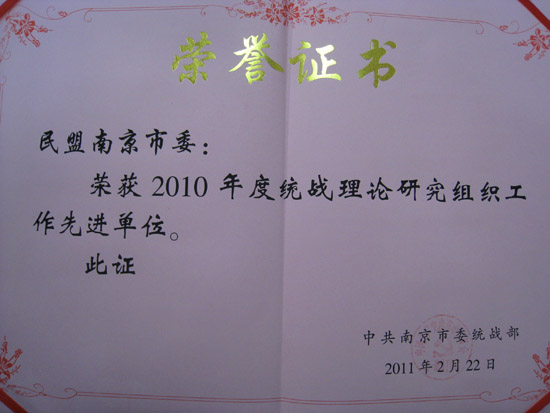 荣誉证书
民盟南京市委：
荣获 2010 年度统战理论研究组织工
作先进单位。
此证
中共南京市委统战部
2011 年 2 月 22 日